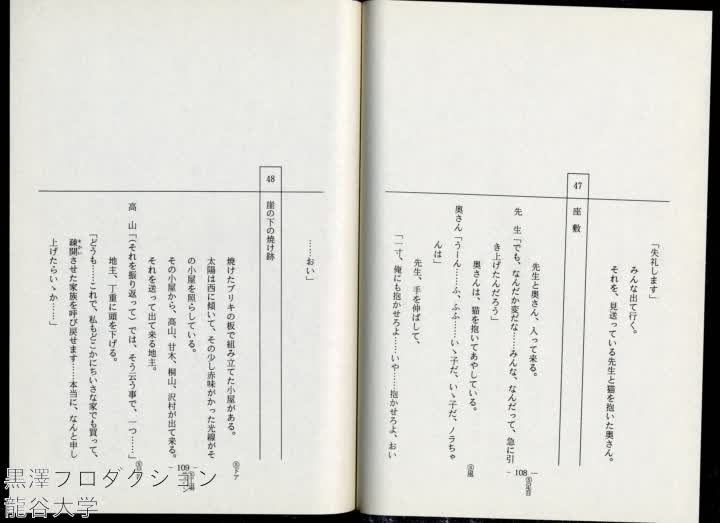 「失礼します」
みんな出て行く。
それを、見送っている先生と猫を抱いた奥さん。
47 座敷
先生と奥さん、入って来る。
先生「でも、なんだか変だな……みんな、なんだって、急に引
き上げたんだろう」
奥さんは、猫を抱いてあやしている。
奥さん「うーん……ふ、ふふ……いゝ子だ、いゝ子だ、ノラちゃ
んは」
先生、手を伸ばして、
「一寸、俺にも抱かせろよ……いや……抱かせろよ、おい
- 108 -
……おい」
48 崖の下の焼け跡
焼けたブリキの板で組み立てた小屋がある。
太陽は西に傾いて、その少し赤味がかった光線がそ
の小屋を照らしている。
その小屋から、高山、甘木、桐山、沢村が出て来る。
それを送って出て来る地主。
高山「(それを振り返って)では、そう云う事で、一つ……」
地主、丁重に頭を下げる。
「どうも……これで、私もどこかにちいさな家でも買って、
疎開させた家族を呼び戻せます……本当に、なんと申し
上げたらいゝか……」
- 109 -
黒澤プロダクション
龍谷大学